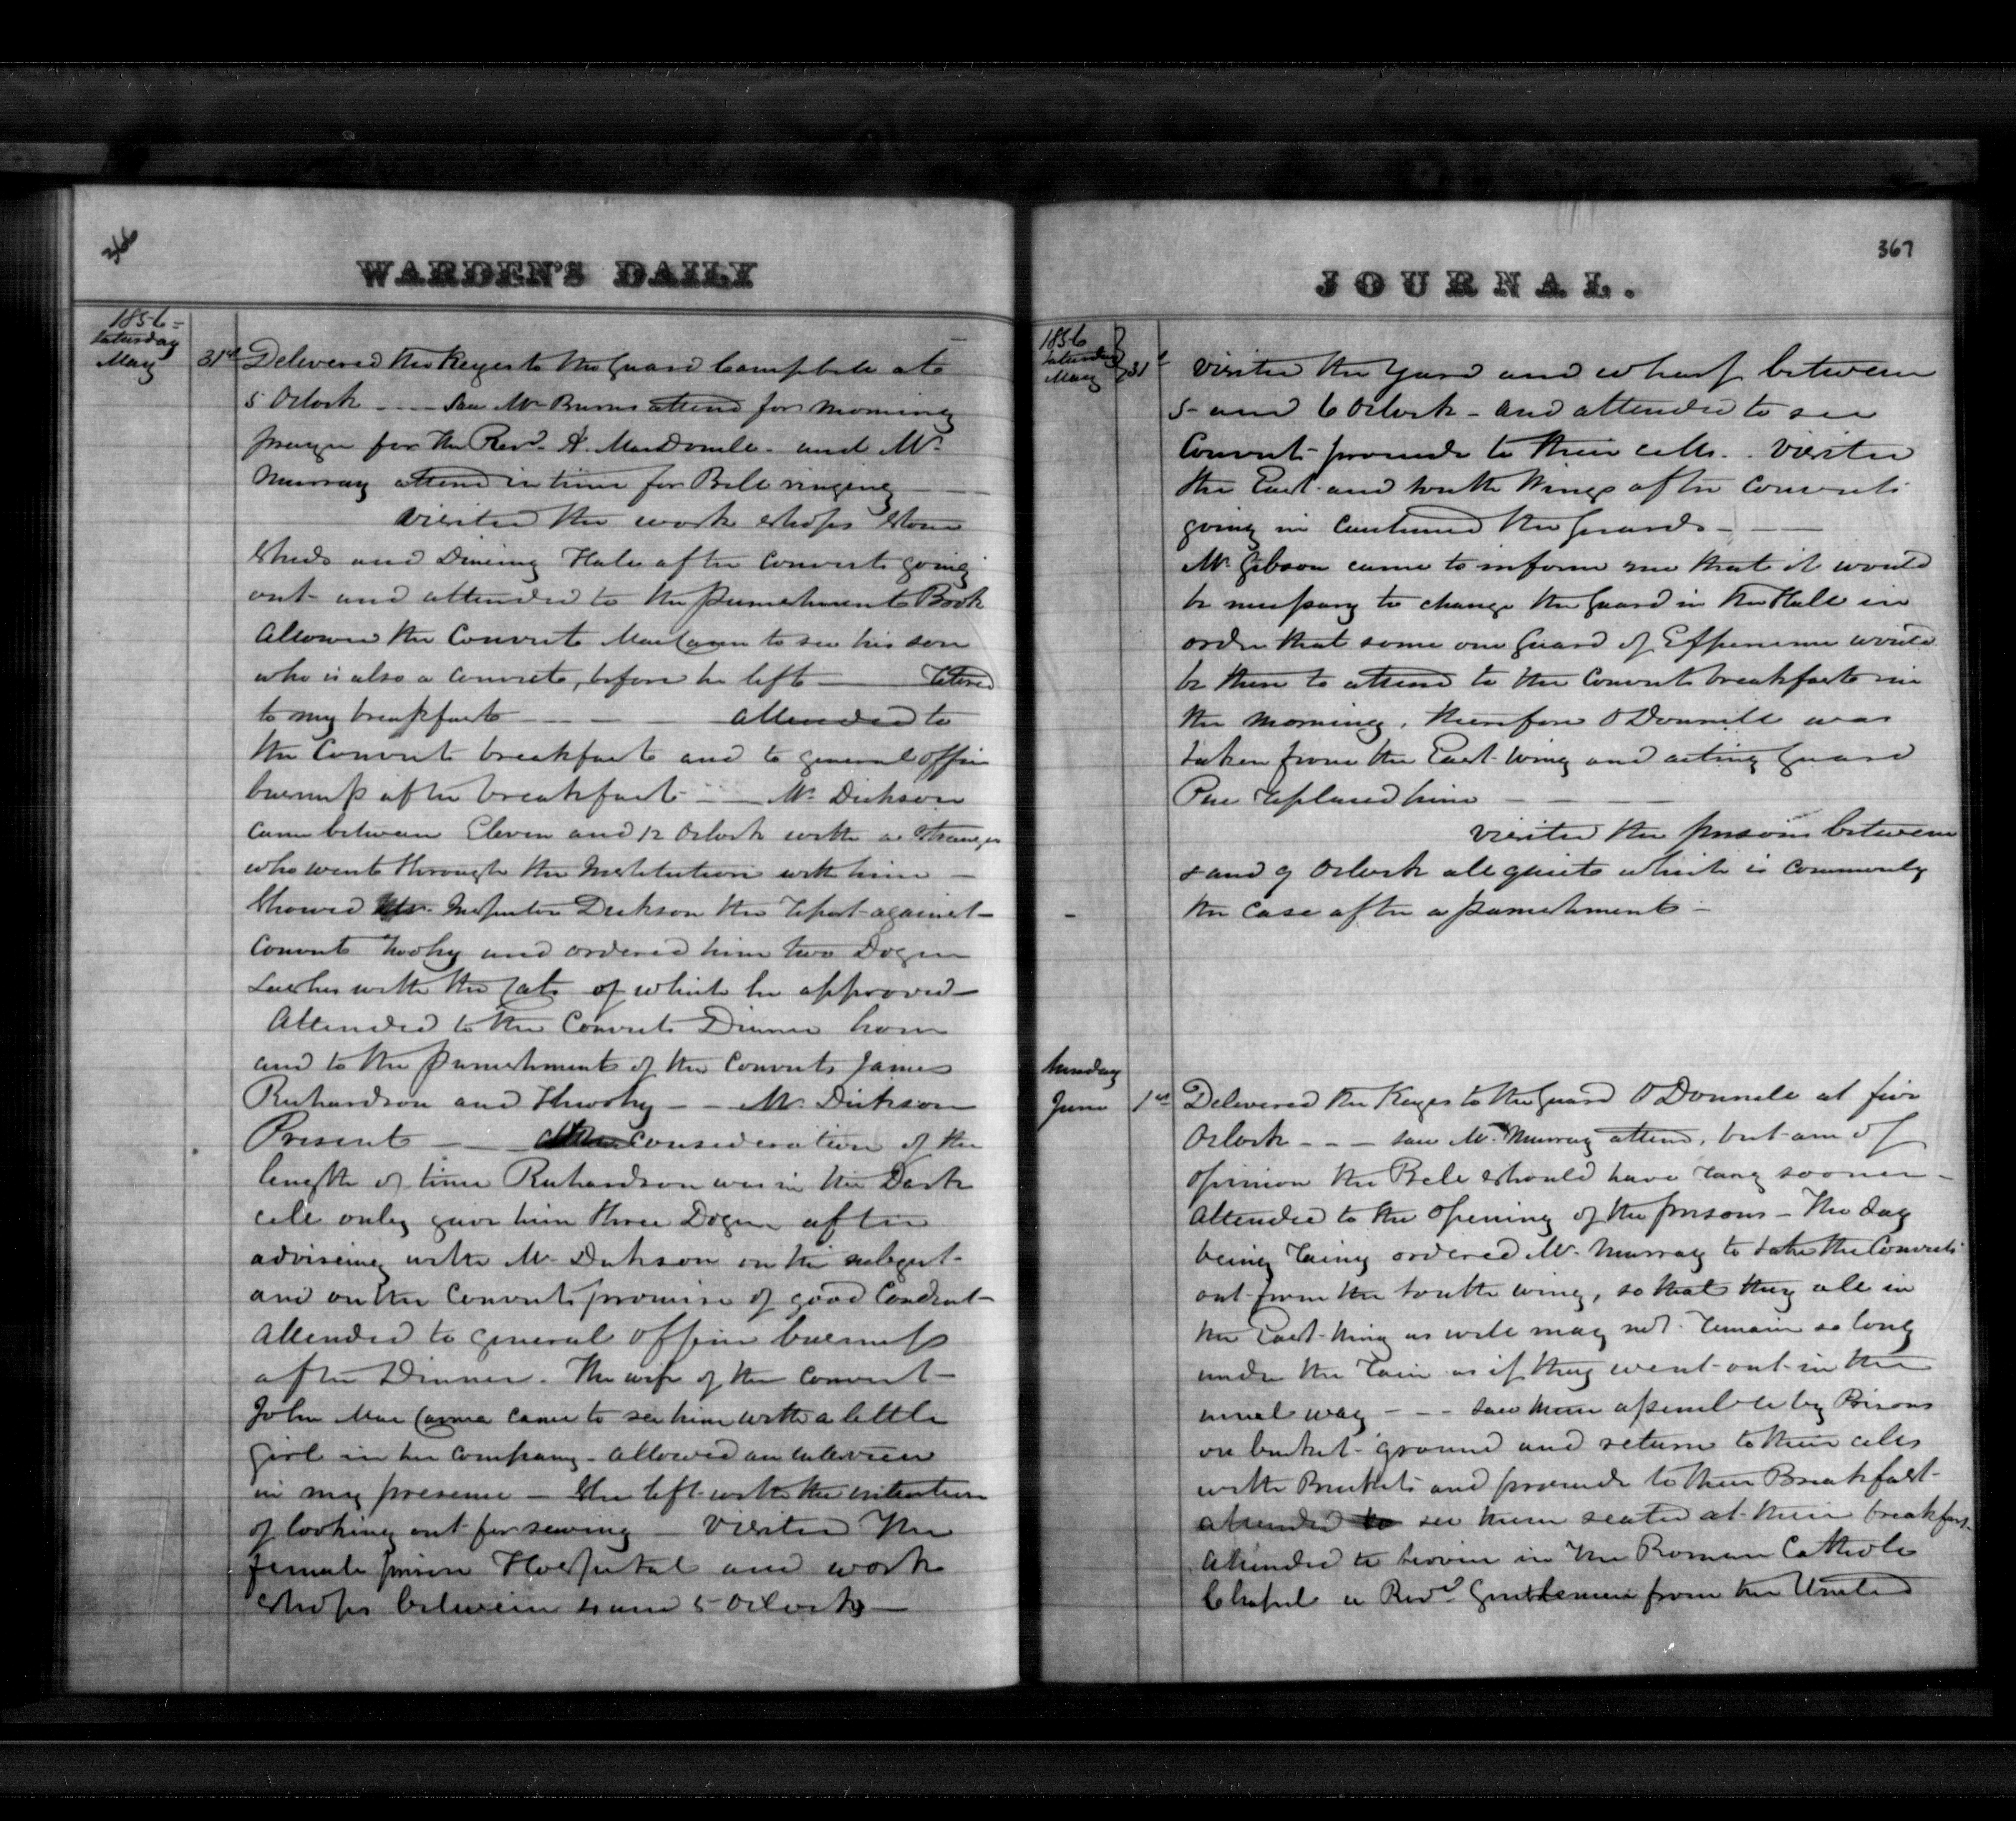 366
WARDEN'S DAILY
1856 -
Saturday
May 31st Delivered the Keyes to the Guard Campbell at
5 Oclock - - - Saw Mr Burns attend for morning
prayer for the Revd. A. MacDonell - and Mr
Murray attend in time for Bell ringing
Visited the work shops Stone
Sheds and Dineing Hall after Convicts going
out - and attended to the Punishment Book
Allowed the Convict MacCann to see his son
who is also a Convict, before he left —
to my breakfast — — — Attended to
the Convicts breakfast and to general office
buisness after breakfast - — Mr. Dickson
came between Eleven and 12 Oclock with a Stranger
who went through the Institution with him —
Showed Inspector Dickson the report against
Convict and ordered him two Dozen
Lashes with the Cats of which he approved
Attended to the Convicts Dinner hour
and to the punishment of the Convicts James
Richardson and — - Mr. Dickson
Present — — consideration of the
length of time Richardson was in the Dark
cell only gave him three Dozen after
adviseing with Mr Dickson on the subject -
and on the Convicts promise of good Conduct -
Attended to general office buisness
after Dinner. The wife of the Convict -
John MacCanna came to see him with a little
girl in her company - allowed an interview
in my presence — She left with the intention
of looking out for sewing Visited the
female prison Hospital and work
shops between 4 and 5 Oclock —
367
JOURNAL.
1856
Saturday
May 31st Visited the Yard and wharf between
5 and 6 Oclock - and attended to see
Convicts proceede to their cells. . Visited
the East and South Wings after Convicts
going in Cautioned the Guards - —
Mr. Gibson came to inform me that it would
be necessary to change the Guard in the Hall in
order that some one Guard of Experience would
be there to attend to the Convicts breakfast in
the morning, therefore O Donnell was
taken from the East Wing and acting Guard
replaced him — — —
Visited the prison between
8 and 9 Oclock all quiet which is commonly
the case after a punishment -
Sunday
June 1st Delivered the Keyes to the Guard O Donnell at five
Oclock - - - Saw Mr. Murray attend, but am of
opinion the Bell should have rang sooner -
Attended to the opening of the prisons - The day
being rainy ordered Mr. Murray to take the Convicts
out from the South wing, so that they all in
the East Wing as well may not remain so long
under the rain as if they went out in the
usual way - - - Saw them assemble by Prisons
on bucket ground and return to their cells
with Buckets and proceede to their Breakfast -
attended to see them seated at their breakfast
Attended to Service in the Roman Catholic
Chapel a Revd. Gentlemen from the United